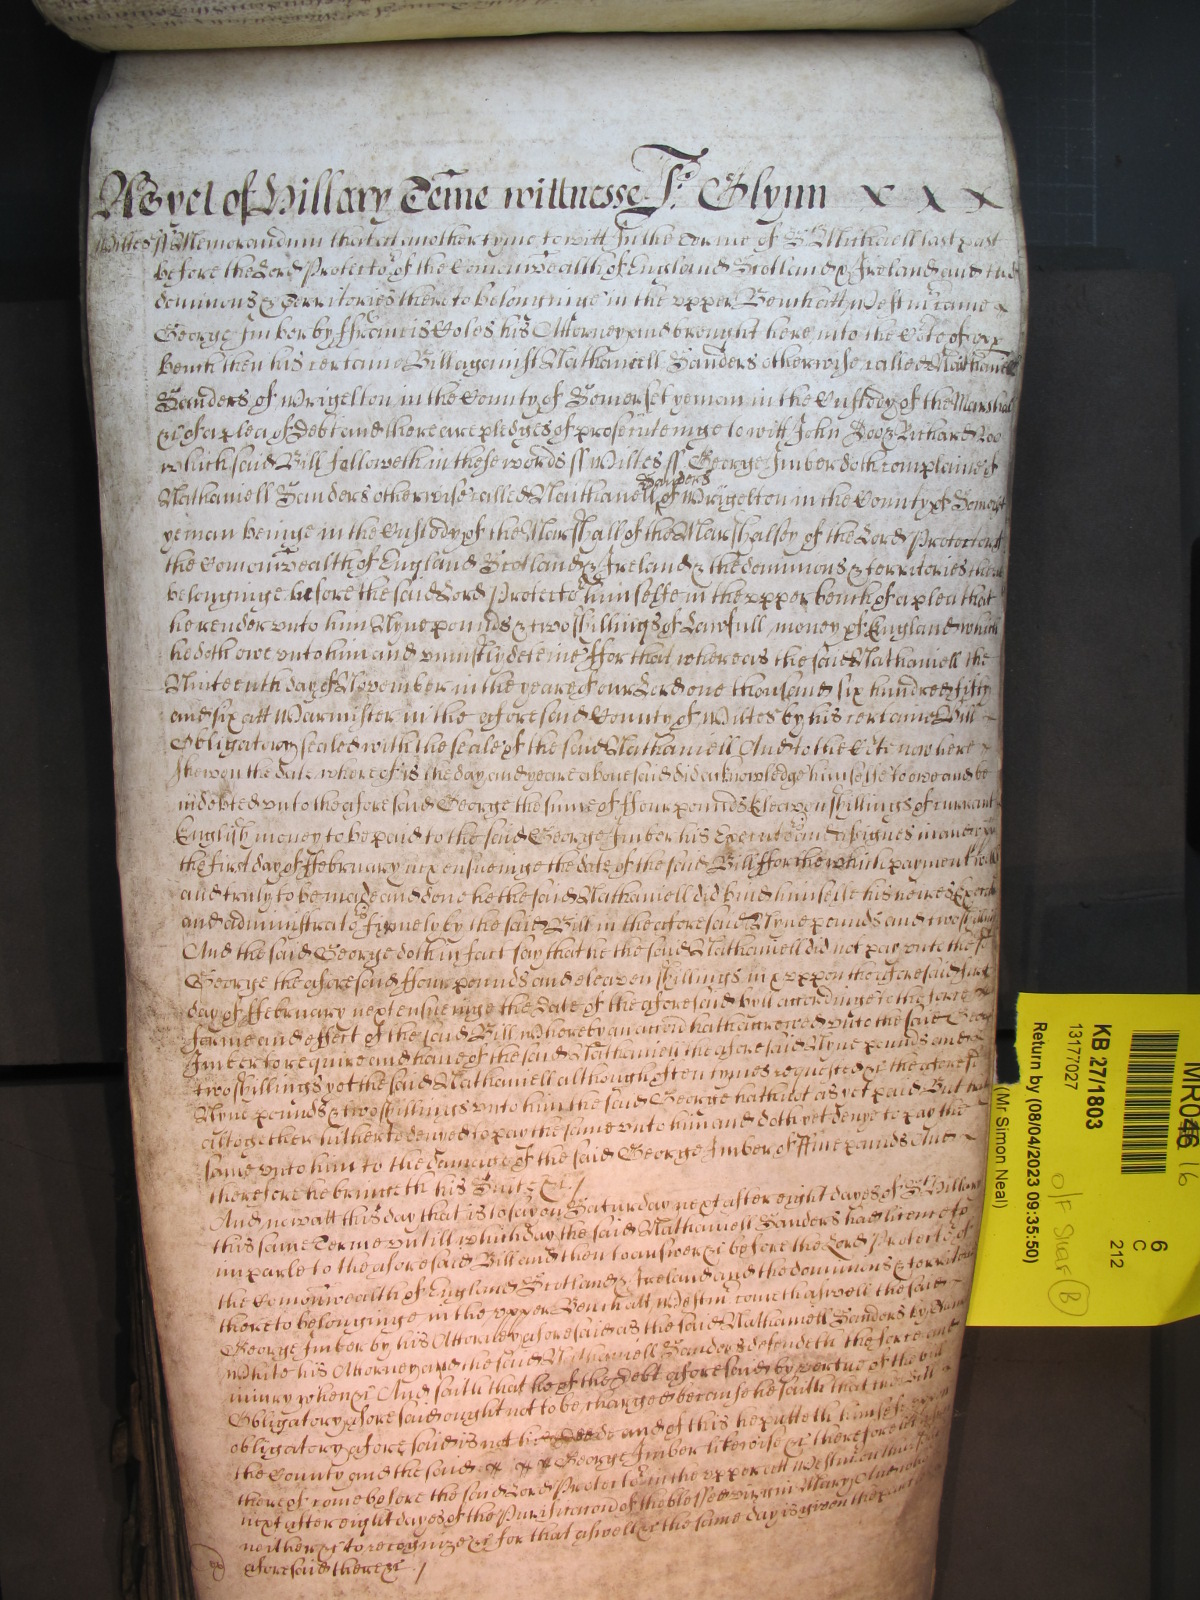 As yet of Hillary Terme wittnesse Jo: Glynn x x x
Wiltes ss Memorandum that att another tyme to witt In the Terme of St Michaell last past
before the Lord Protector of the Comonwealth of England Scotland & Ireland and the
dominions & Territories thereto belonginge in the upper Bench att Westm came
George Imber by Ffrancis Coles his Attorney and brought here into the Cote of upp
Bench then his certaine Bill against Nathaniell Sanders otherwise called Nathaniell
Sanders of Wrigelton in the County of Somerset yeman in the Custody of the Marshal
&c of a plea of Debt and there are pledges of prosecuteinge to witt John Doo & Richard Roo
which said Bill followeth in these words ss Wiltes ss George Imber doth complaine of
Nathaniell Sanders otherwise called Nathaniell Sanders of Wrigelton in the County of Somerst
yeman beinge in the Custody of the Marshall of the Marshalsey of the Lord Protector of
the Comonwealth of England Scotland & Ireland & the dominions & territories there
belonginge before the said Lord Protector himselfe in the upper bench of a plea that
he render unto him Nyne pounds & two shillings of Lawfull money of England which
he doth owe unto him and uniustly deteine Ffor that whereas the said Nathaniell the
Ninteenth day of November in the yeare of our Lord one thousand six hundred fifty
and six att Warmister in the aforesaid County of Wiltes by his certaine Bill
Obligatory sealed with the seale of the said Nathaniell And to the Cote now here
shewen the date whereof is the day and yeare abovesaid did acknowledge himselfe to owe and be
indebted unto the aforesaid George the sume of Ffour pounds Eleaven shillings of currant
English money to be paid to the said George Imber his Executors and assignes in and upon
the first day of Ffebruary next ensueinge the date of the said Bill Ffor the which payment well
and truly to be made and done he the said Nathaniell did bind himselfe his heires Executors
and administrators firmely by the said Bill in the aforesaid Nyne pounds and two shillings
And the said George doth in fact say that he the said Nathaniell did not pay unto the sd
George the aforesaid Ffour pounds and eleaven shillings in & uppon the aforesaid first
day of Ffebruary next ensueinge the Date of the aforesaid byll accordinge to the force
forme and effect of the said Bill Whereby an accon hath accrewed unto the said George
Imber to require and have of the said Nathaniell the aforesaid Nyne pounds and
two shillings yet the said Nathaniell although often tymes requested &c the aforesd
Nyne pounds & two shillings unto him the said George hath not as yet paid But
altogether hitherto denyed to pay the same unto him and doth yet denye to pay the
same unto him to the damage of the said George Imber of Ffive pounds And
therefore he bringeth his Suite &c /
And now att this day that is to say on Saturday next after eight dayes of St Hillary
this same Terme untill which day the said Nathaniell Sanders had licence to
imparle to the aforesaid Bill and then to answer &c before the Lord Protector of
the Comonwealth of England Scotland & Ireland and the dominions & territories
thereto belonginge in the upper Bench att Westm come th aswell the said
George Imber by his Attorney aforesaid as the said Nathaniell Sanders by
White his Attorney and the said Nathaniell Sanders defendeth the force and
iniury when &c And saith that he of the Debt aforesaid by vertue of the bill
Obligatory aforesaid ought not to be charged because he saith that the Bill
obligatory aforesaid is not his deede and of this he putteth himselfe upon
the County and the said x x x George Imber likewise &c therefore let
thereof come before the said Lord Protector in the upper att Westm on
next after eight dayes of the Purificacon of the blessed virgin Mary
neither &c to recognize &c for that aswell &c the same day is given the parties
aforesaid there &c /
MR046
16
KB 27/1803
13177027
Return by (08/04/2023 09:35:50)
(Mr Simon Neal)
6
C
212
B